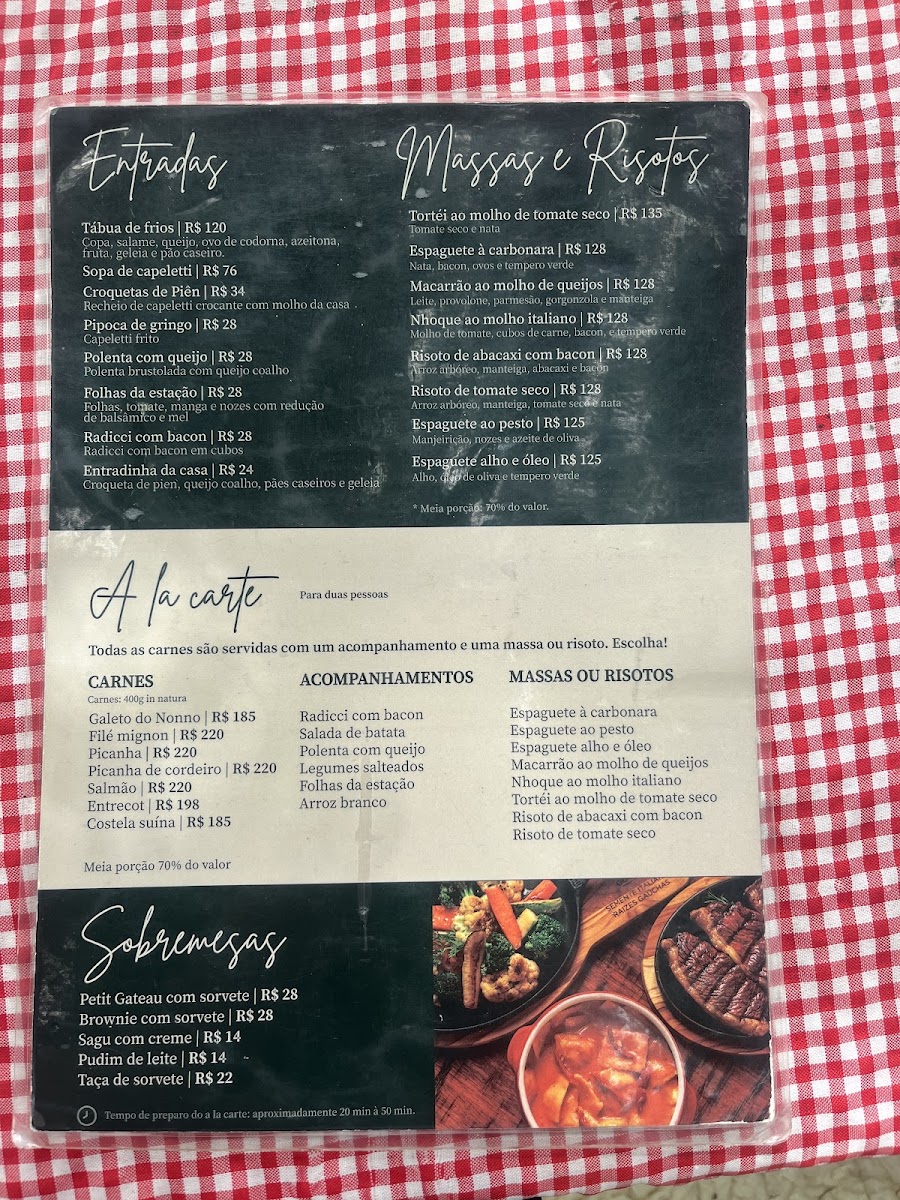 Entradas
Tábua de frios | R$ 120
Copa, salame, queijo, ovo de codorna, azeitona,
fruta, geleia e pão caseiro.
Sopa de capeletti | R$ 76
Croquetas de Piên | R$ 34
Recheio de capeletti crocante com molho da casa
Pipoca de gringo | R$ 28
Capeletti frito
Polenta com queijo | R$ 28
Polenta brustolada com queijo coalho
Folhas da estação | R$ 28
Folhas, tomate, manga e nozes com redução
de balsâmico e mel
Radicci com bacon | R$ 28
Radicci com bacon em cubos
Entradinha da casa | R$ 24
Croqueta de pien, queijo coalho, pães caseiros e geleia
Massas e Risotos
Tortéi ao molho de tomate seco | R$ 135
Tomate seco e nata
Espaguete à carbonara | R$ 128
Nata, bacon, ovos e tempero verde
Macarrão ao molho de queijos | R$ 128
Leite, provolone, parmesão, gorgonzola e manteiga
Nhoque ao molho italiano | R$ 128
Molho de tomate, cubos de carne, bacon, e tempero verde
Risoto de abacaxi com bacon | R$ 128
Arroz arbóreo, manteiga, abacaxi e bacon
Risoto de tomate seco | R$ 128
Arroz arbóreo, manteiga, tomate seco e nata
Espaguete ao pesto | R$ 125
Manjeirição, nozes e azeite de oliva
Espaguete alho e óleo | R$ 125
Alho, óleo de oliva e tempero verde
* Meia porção: 70% do valor.
A la carte
Para duas pessoas
Todas as carnes são servidas com um acompanhamento e uma massa ou risoto. Escolha!
CARNES
Carnes: 400g in natura
Galeto do Nonno | R$ 185
Filé mignon | R$ 220
Picanha | R$ 220
Picanha de cordeiro | R$ 220
Salmão | R$ 220
Entrecot | R$ 198
Costela suína | R$ 185
Meia porção 70% do valor
ACOMPANHAMENTOS
Radicci com bacon
Salada de batata
Polenta com queijo
Legumes salteados
Folhas da estação
Arroz branco
MASSAS OU RISOTOS
Espaguete à carbonara
Espaguete ao pesto
Espaguete alho e óleo
Macarrão ao molho de queijos
Nhoque ao molho italiano
Tortéi ao molho de tomate seco
Risoto de abacaxi com bacon
Risoto de tomate seco
Sobremesas
Petit Gateau com sorvete | R$ 28
Brownie com sorvete | R$ 28
Sagu com creme | R$ 14
Pudim de leite | R$ 14
Taça de sorvete | R$ 22
Tempo de preparo do a la carte: aproximadamente 20 min à 50 min.
RAÍZES GAÚCHAS